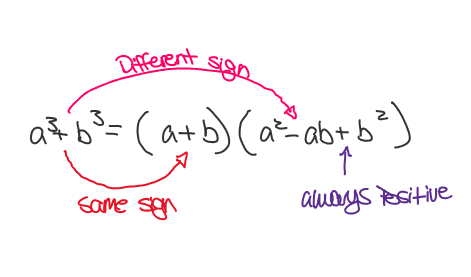 Different sign
a³+b³=(a+b)(a²-ab+b²)
same sign
always positive